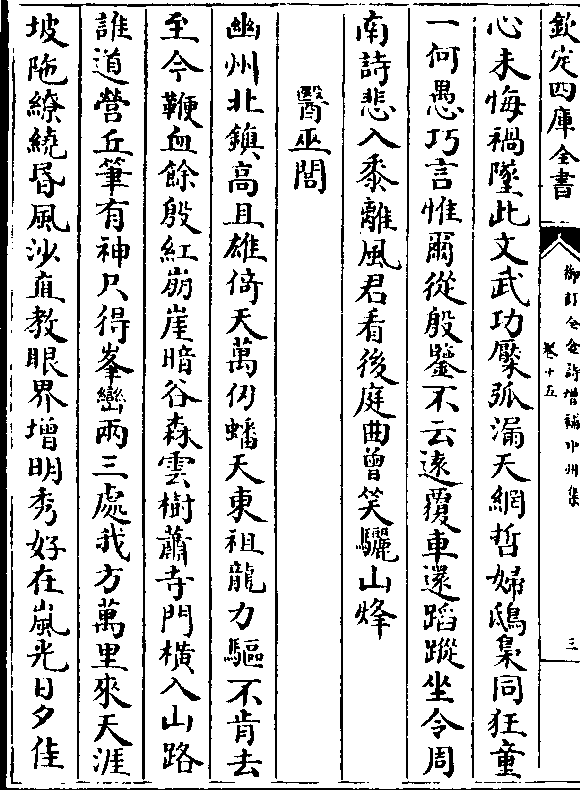 欽定四庫全書
御訂全金詩增補中州集
卷十五
三
心未悔禍墜此文武功檿弧漏天網哲婦鴟梟同狂童
一何愚巧言惟爾從殷鑒不云遠覆車還蹈蹤坐令周
南詩悲入黍離風君看後庭曲曾笑驪山烽
醫巫閭
幽州北鎮高且雄倚天萬仞蟠天東祖龍力驅不肯去
至今鞭血餘殷紅崩崖暗谷森雲樹蕭寺門橫入山路
誰道營丘筆有神只得峯巒兩三處我方萬里來天涯
坡陁繚繞昏風沙直教眼界增明秀好在嵐光日夕佳